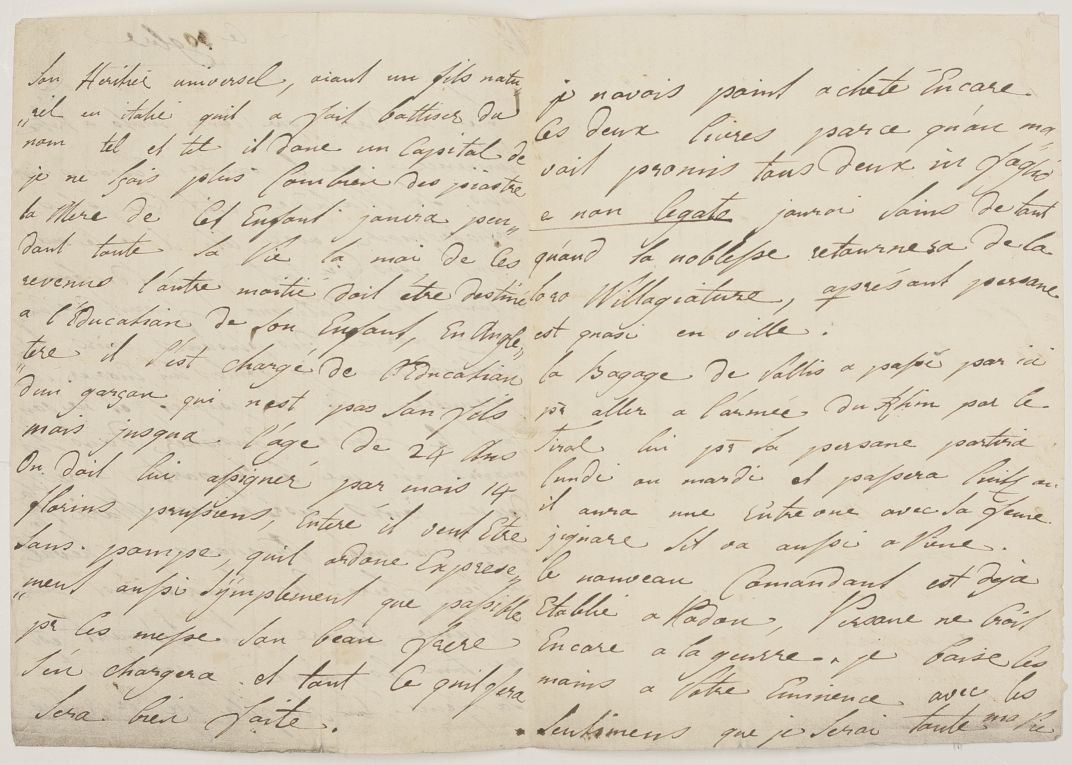 son Heritié universel, aiant un fils natu
„rel en italie quil a fait battiser du
nom tel et tel il done un Capital de
je ne sçais plus Combien des piastre
la Mere de Cet Enfant jouira pen„
dant toute sa Vie la moi de Ces
revenus l'autre moitie doit être destiné
a l'Education de son Enfant, En Angle„
„tere il s'est chargé de l'Education
d'un garçon qui n'est pas son fils
mais jusqua l'age de 24 Ans
On doit lui assigner par mois 14
florins prussiens, Enteré il veut Etre
sans pompe, quil ordone Exprese„
„ment aussi symplement que possible
pr les messe son beau frere
s'en chargera et tout Ce quil fera
sera bien faite.
je n'avois point acheté Encore
les deux livres parce qu'on m'a„
voit promis tous deux in foglio
e non legato j'aurai soins de tant
quand la noblesse retournera de la
loro Willagiature, apresant persone
est quasi en ville.
la Bagage de Wallis a passé par ici
pr aller a l'armée du Rhin par le
Tirol lui pr sa persone partira
lundi ou mardi et passera
il aura une Entrevue avec sa feme
j'ignore s'il va aussi a Viene.
le nouveau Comandant est deja
Etablie a Padou, Persone ne Croit
Encore a la guerre. je baise les
mains a Votre Eminence avec les
sentimens que je serai toute ma Vie